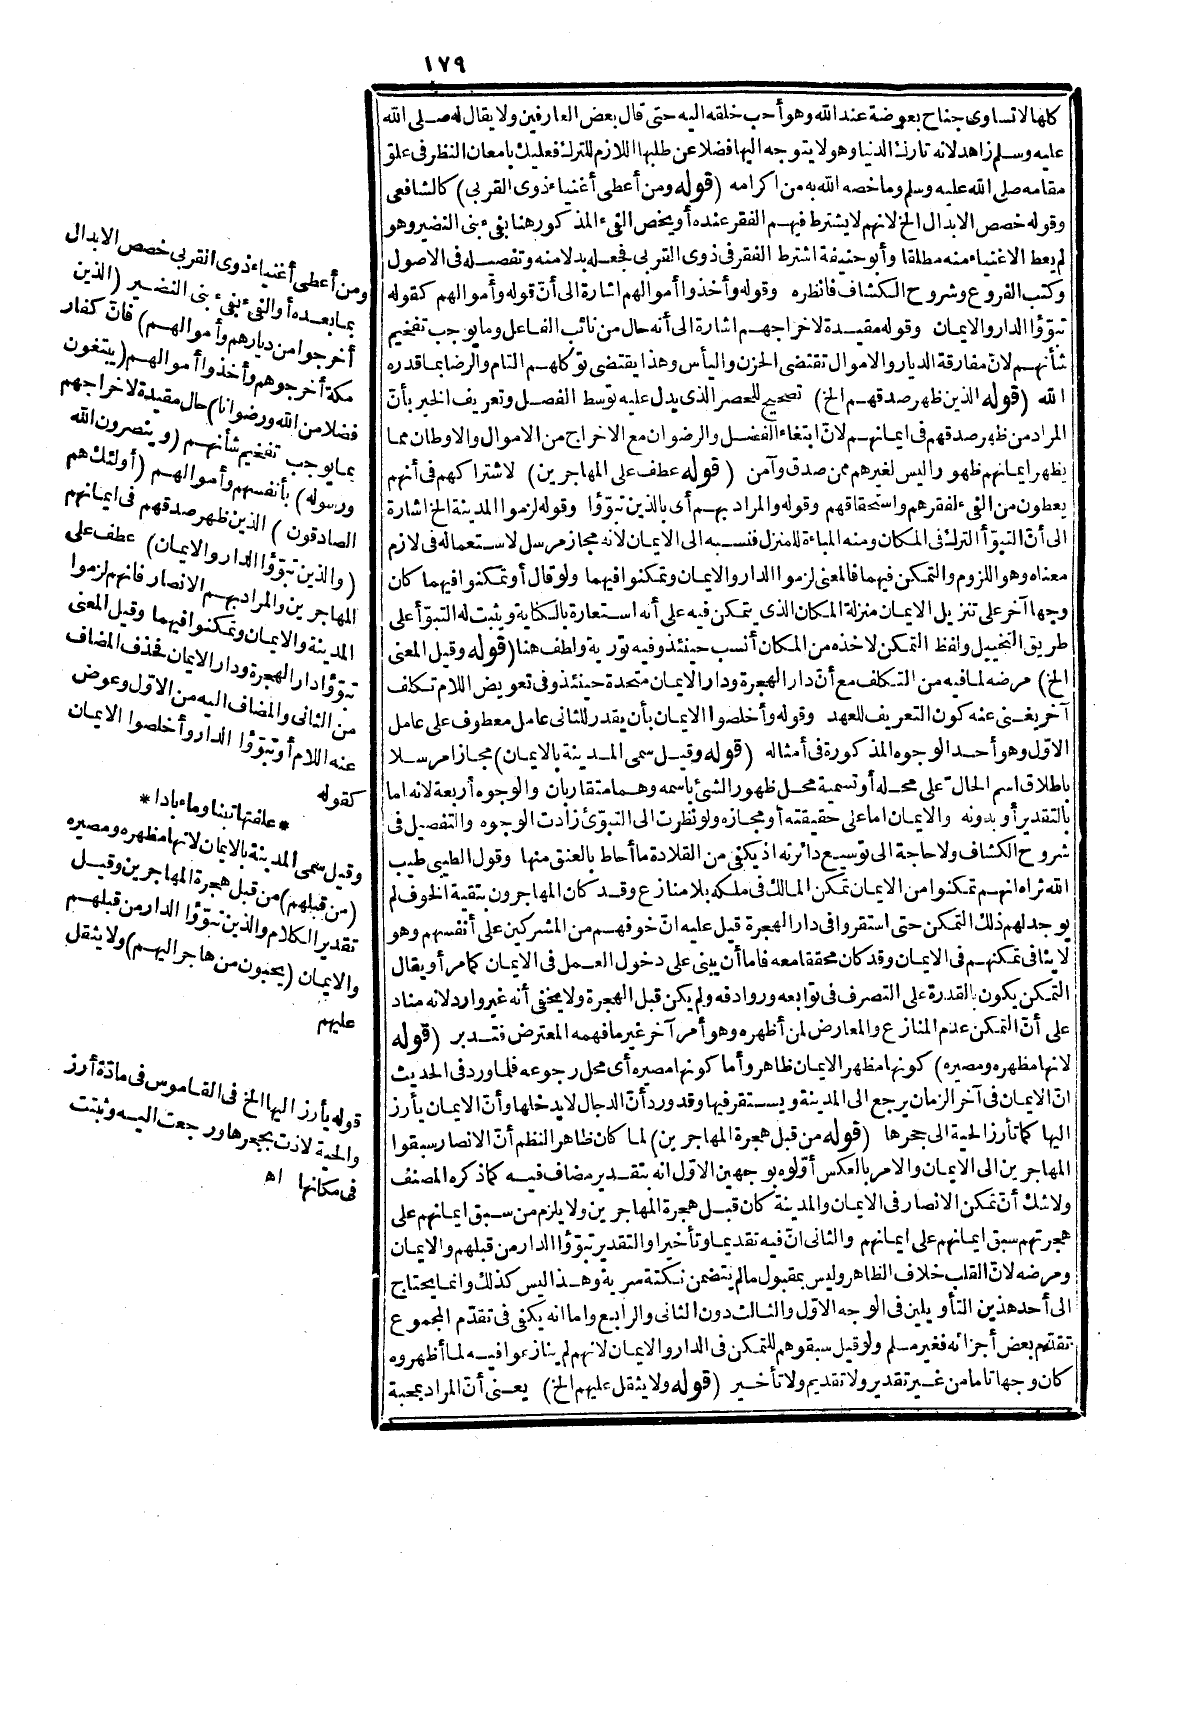 ١٧٩
كلها لا تساوى جناح بعوضة عند الله وهو أحب خلقه اليه حتى قال بعض العارفين ولا يقال له صلى الله
عليه وسلم زاهد لانه تارك الدنيا وهو لا يتوجه اليها فضلا عن طلبها اللازم للترك فعليك بامعان النظر فى علو
مقامه صلى الله عليه وسلم وما خصه الله به من اكرامه (قوله ومن أعطى أغنياء ذوى القربى) كالشافعى
وقوله خصص الابدال الخ لانهم لا يشترط فيهم الفقر عنده أو يخص الفىء المذكور هنا بفىء بنى النضير وهو
لم يعط الاغنياء منه مطلقا وأبو حنيفة اشترط الفقر فى ذوى القربى فجعله بدلا منه وتفصيله فى الاصول
وكتب الفروع وشروح الكشاف فانظره وقوله وأخذوا أموالهم اشارة الى أنّ قوله وأموالهم كقوله
تبوّؤا الدار والايمان وقوله مقيدة لاخراجهم اشارة الى أنه حال من نائب الفاعل وما يوجب تفخيم
شأنهم لانّ مفارقة الديار والاموال تقتضى الحزن واليأس وهذا يقتضى توكلهم التام والرضا بما قدره
الله (قوله الذين ظهر صدقهم الخ) تصحيح للحصر الذى يدل عليه توسط الفصل وتعريف الخبر بأنّ
المراد من ظهر صدقهم فى ايمانهم لانّ ابتغاء الفضل والرضوان مع الاخراج من الاموال والاوطان مما
يظهر ايمانهم ظهورا ليس لغيرهم ممن صدق وآمن (قوله عطف على المهاجرين) لاشتراكهم فى أنهم
يعطون من الفىء لفقرهم واستحقاقهم وقوله والمراد بهم أى بالذين تبوّؤا وقوله لزموا المدينة الخ اشارة
الى أنّ التبوّأ النزل فى المكان ومنه المباءة للمنزل فنسبه الى الايمان لانه مجاز مرسل لاستعماله فى لازم
معناه وهو اللزوم والتمكن فيهما فالمعنى لزموا الدار والايمان وتمكنوا فيهما ولو قال أو تمكنوا فيهما كان
وجها آخر على تنزيل الايمان منزلة المكان الذى يتمكن فيه على أنه استعارة بالكناية ويثبت له التبوّأ على
طريق التخييل ولفظ التمكن لاخذه من المكان أنسب حينئذ وفيه تورية ولطف هنا (قوله وقيل المعنى
الخ) مرضه لما فيه من التكلف مع أنّ دار الهجرة ودار الايمان متحدة حينئذ وفى تعويض اللام تكلف
آخر يغنى عنه كون التعريف للعهد وقوله وأخلصوا الايمان بأن يقدر للثانى عامل معطوف على عامل
الاوّل وهو أحد الوجوه المذكورة فى أمثاله (قوله وقيل سمى المدينة بالايمان) مجازا مرسلا
باطلاق اسم الحالّ على محله أو تسمية محل ظهور الشئ باسمه وهما متقاربان والوجوه أربعة لانه اما
بالتقدير أو بدونه والايمان اما على حقيقته أو مجازه ولو نظرت الى التبوّئ زادت الوجوه والتفصيل فى
شروح الكشاف ولا حاجة الى توسيع دائرته اذ يكفى من القلادة ما أحاط بالعنق منها وقول الطيبى طيب
الله ثراه انهم تمكنوا من الايمان تمكن المالك فى ملكه بلا منازع وقد كان المهاجرون بتقية الخوف لم
يوجد لهم ذلك التمكن حتى استقروا فى دار الهجرة قيل عليه انّ خوفهم من المشركين على أنفسهم وهو
لا ينافى تمكنهم فى الايمان وقد كان محققا معه فاما أن يبنى على دخول العمل فى الايمان كما مر أو يقال
التمكن يكون بالقدرة على التصرف فى توابعه وروادفه ولم يكن قبل الهجرة ولا يخفى أنه غير وارد لانه مناد
على أنّ التمكن عدم المنازع والمعارض لمن أظهره وهو أمر آخر غير ما فهمه المعترض فتدبر (قوله
لانها مظهره ومصيره) كونها مظهر الايمان ظاهر وأما كونها مصيره أى محل رجوعه فلما ورد فى الحديث
انّ الايمان فى آخر الزمان يرجع الى المدينة ويستقر فيها وقد ورد أنّ الدجال لا يدخلها وأنّ الايمان يأرز
اليها كما تأرز الحية الى جحرها (قوله من قبل هجرة المهاجرين) لما كان ظاهر النظم أنّ الانصار سبقوا
المهاجرين الى الايمان والامر بالعكس أوّلوه بوجهين الاوّل انه بتقدير مضاف فيه كما ذكره المصنف
ولا شك أنّ تمكن الانصار فى الايمان والمدينة كان قبل هجرة المهاجرين ولا يلزم من سبق ايمانهم على
هجرتهم سبق ايمانهم على ايمانهم والثانى انّ فيه تقديما وتأخيرا والتقدير تبوّؤا الدار من قبلهم والايمان
ومرضه لانّ القلب خلاف الظاهر وليس بمقبول ما لم يتضمن نكتة سرية وهذا ليس كذلك وانما يحتاج
الى أحد هذين التأويلين فى الوجه الاوّل والثالث دون الثانى والرابع واما انه يكفى فى تقدّم المجموع
تقدّم بعض أجزائه فغير مسلم ولو قيل سبقوهم للتمكن فى الدار والايمان لانهم لم ينازعوا فيه لما أظهروه
كان وجها تاما من غير تقدير ولا تقديم ولا تأخير (قوله ولا يثقل عليهم الخ) يعنى أنّ المراد بمحبة
ومن أعطى أغنياء ذوى القربى خصص الابدال
بما بعده أو الفىء بفىء بنى النضير (الذين
أخرجوا من ديارهم وأموالهم) فانّ كفار
مكة أخرجوهم وأخذوا أموالهم (يبتغون
فضلا من الله ورضوانا) حال مقيدة لاخراجهم
بما يوجب تفخيم شأنهم (وينصرون الله
ورسوله) بأنفسهم وأموالهم (أولئك هم
الصادقون) الذين ظهر صدقهم فى ايمانهم
(والذين تبوّؤا الدار والايمان) عطف على
المهاجرين والمراد بهم الانصار فانهم لزموا
المدينة والايمان وتمكنوا فيهما وقيل المعنى
تبوّؤا دار الهجرة ودار الايمان فحذف المضاف
من الثانى والمضاف اليه من الاوّل وعوض
عنه اللام أو تبوّؤا الدار وأخلصوا الايمان
كقوله
* علفتها تبنا وماء باردا *
وقيل سمى المدينة بالايمان لانها مظهره ومصيره
(من قبلهم) من قبل هجرة المهاجرين وقيل
تقدير الكلام والذين تبوّؤا الدار من قبلهم
والايمان (يحبون من هاجر اليهم) ولا يثقل
عليهم
قوله يأرز اليها الخ فى القاموس فى مادّة أرز
والحية لاذت بجحرها ورجعت اليه وثبتت
فى مكانها اه